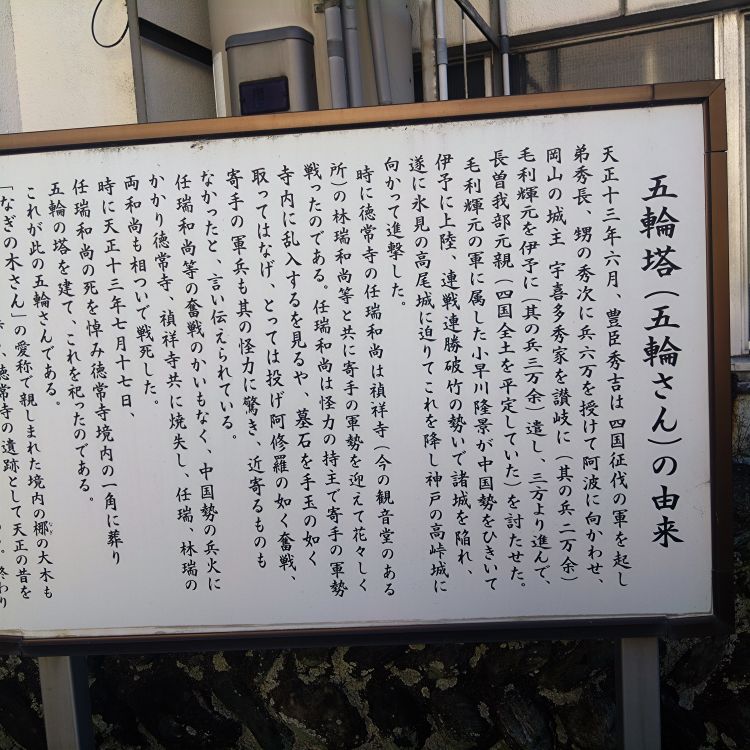 五輪塔(五輪さん)の由来
天正十三年六月、豊臣秀吉は四国征伐の軍を起し
弟秀長、甥の秀次に兵六万を授けて阿波に向かわせ、
岡山の城主 宇喜多秀家を讃岐に(其の兵二万余)
毛利輝元を伊予に(其の兵三万余)遣し、三方より進んで、
長曽我部元親(四国全土を平定していた)を討たせた。
毛利輝元の軍に属した小早川隆景が中国勢をひきいて
伊予に上陸、連戦連勝破竹の勢いで諸城を陥れ、
遂に氷見の高尾城に迫りてこれを降し神戸の高峠城に
向かって進撃した。
時に徳常寺の任瑞和尚は禎祥寺(今の観音堂のある
所)の林瑞和尚等と共に寄手の軍勢を迎えて花々しく
戦ったのである。任瑞和尚は怪力の持主で寄手の軍勢
寺内に乱入するを見るや、墓石を手玉の如く
取ってはなげ、とっては投げ阿修羅の如く奮戦、
寄手の軍兵も其の怪力に驚き、近寄るものも
なかったと、言い伝えられている。
任瑞和尚等の奮戦のかいもなく、中国勢の兵火に
かかり徳常寺、禎祥寺共に焼失し、任瑞、林瑞の
両和尚も相ついで戦死した。
時に天正十三年七月十七日、
任瑞和尚の死を悼み徳常寺境内の一角に葬り
五輪の塔を建て、これを祀ったのである。
これが此の五輪さんである。
「なぎの木さん」の愛称で親しまれた境内の梛の大木も
徳常寺の遺跡として天正の昔を
終わり